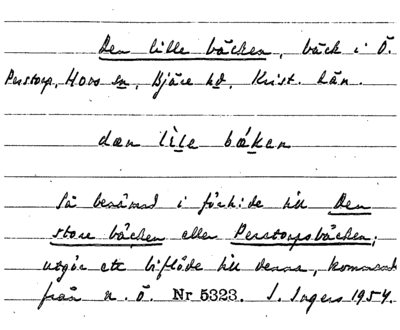 Den lille bäcken, bäck i Ö.
Perstorp, Hovs sn, Bjäre hd, Krist. län.
dæn lìle bǽken
Så benämnd i förh:de till Den
store bäcken eller Perstorpsbäcken;
utgör ett biflöde till denna, kommande
från n. Ö. Nr 5323. I. Ingers 1954.